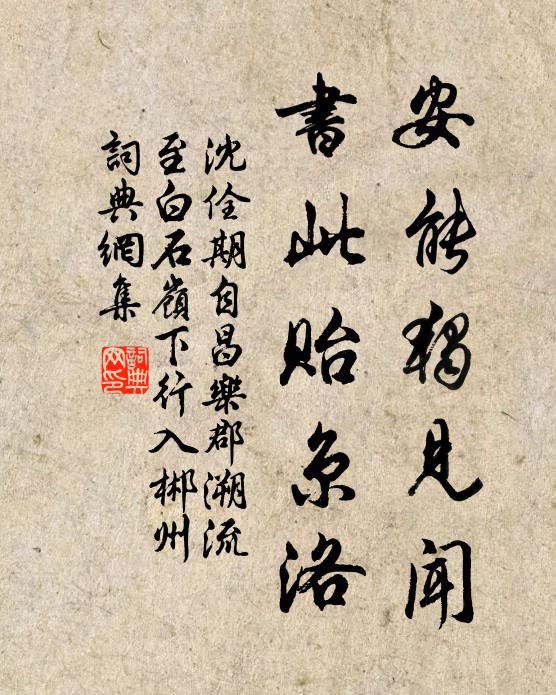 安能獨見聞
書此貽京洛
沈佺期自昌樂郡溯流
至白石嶺下行入郴州
詞典網集
詞典
网印